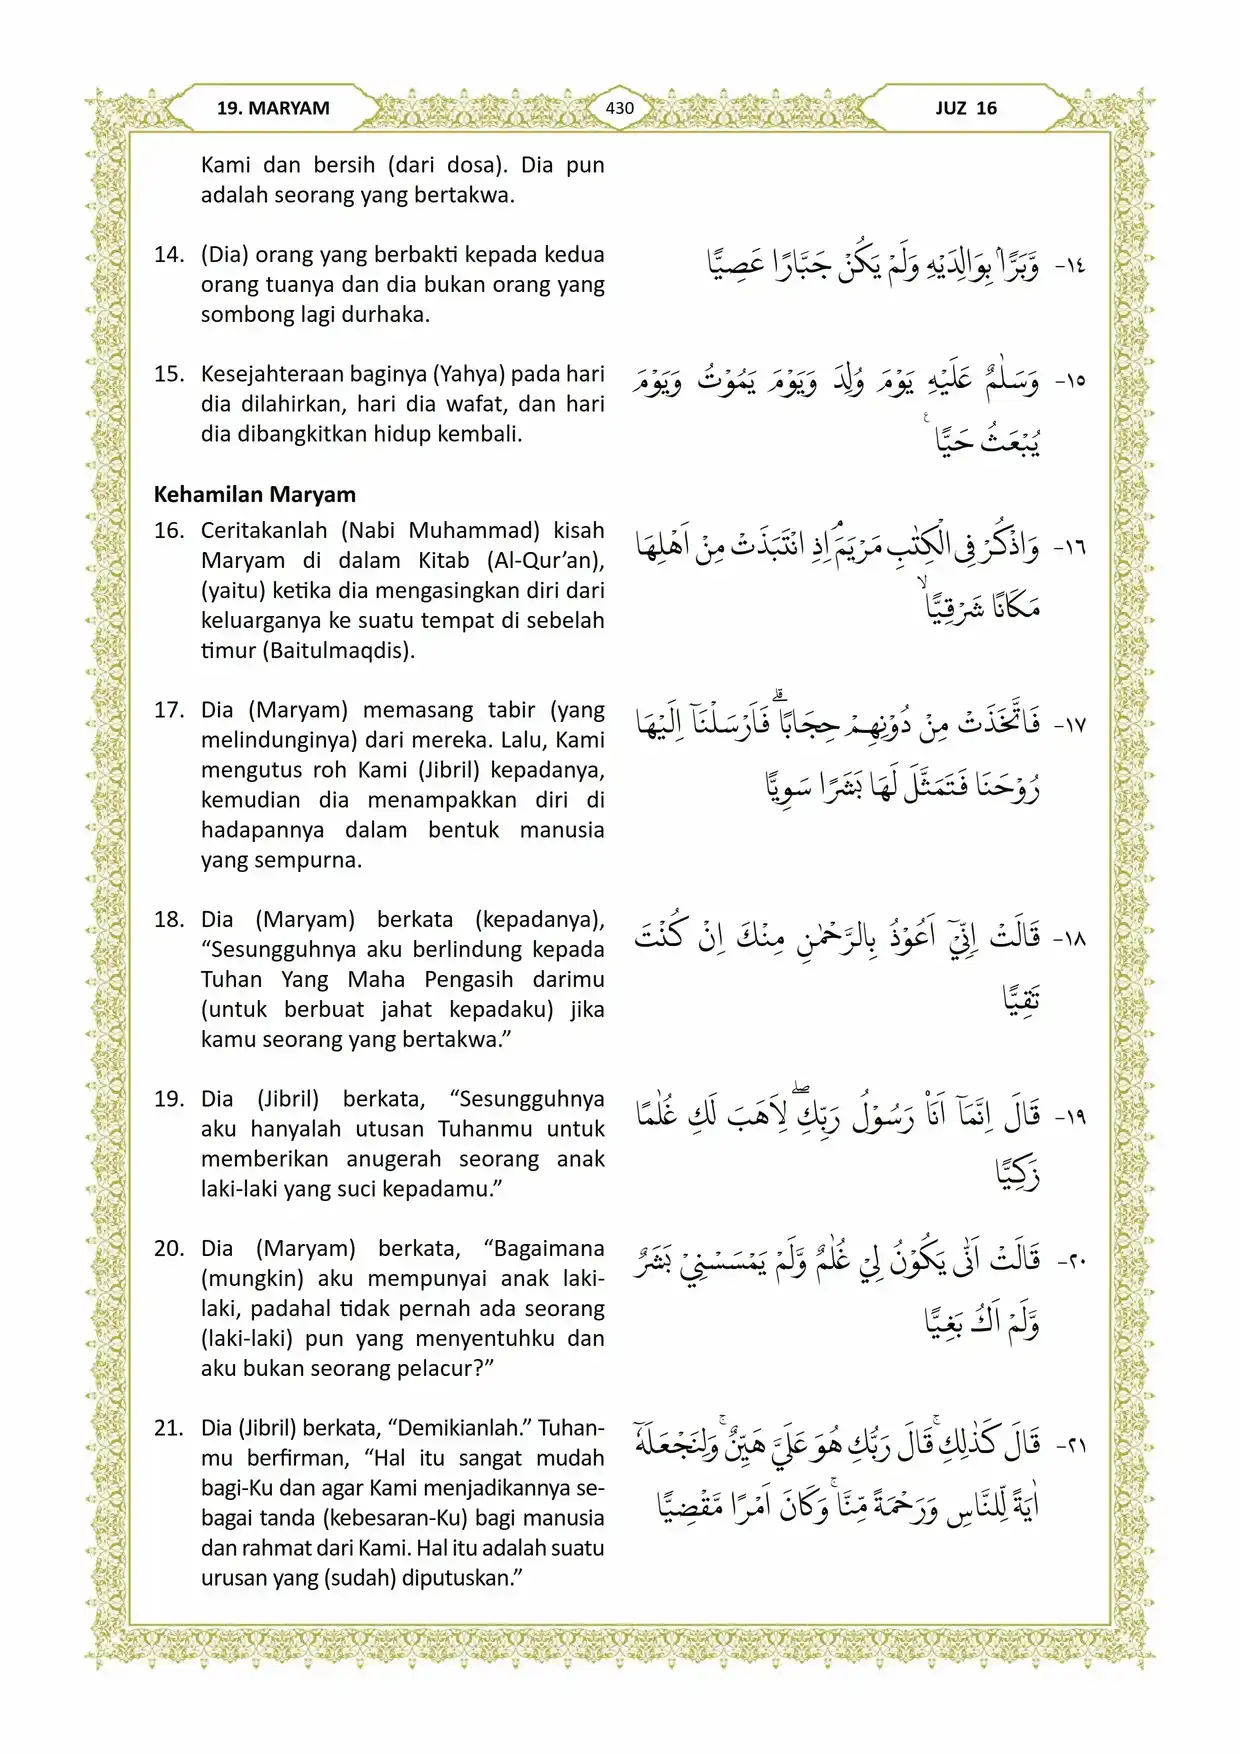 19. MARYAM
430
JUZ 16
Kami dan bersih (dari dosa). Dia pun
adalah seorang yang bertakwa.
14. (Dia) orang yang berbakti kepada kedua
orang tuanya dan dia bukan orang yang
sombong lagi durhaka.
١٤- وَّبَرًّاۢ بِوَالِدَيْهِ وَلَمْ يَكُنْ جَبَّارًا عَصِيًّا
15. Kesejahteraan baginya (Yahya) pada hari
dia dilahirkan, hari dia wafat, dan hari
dia dibangkitkan hidup kembali.
١٥- وَسَلٰمٌ عَلَيْهِ يَوْمَ وُلِدَ وَيَوْمَ يَمُوْتُ وَيَوْمَ
يُبْعَثُ حَيًّا ࣖ
Kehamilan Maryam
16. Ceritakanlah (Nabi Muhammad) kisah
Maryam di dalam Kitab (Al-Qur’an),
(yaitu) ketika dia mengasingkan diri dari
keluarganya ke suatu tempat di sebelah
timur (Baitulmaqdis).
١٦- وَاذْكُرْ فِى الْكِتٰبِ مَرْيَمَۘ اِذِ انْتَبَذَتْ مِنْ اَهْلِهَا
مَكَانًا شَرْقِيًّاۙ
17. Dia (Maryam) memasang tabir (yang
melindunginya) dari mereka. Lalu, Kami
mengutus roh Kami (Jibril) kepadanya,
kemudian dia menampakkan diri di
hadapannya dalam bentuk manusia
yang sempurna.
١٧- فَاتَّخَذَتْ مِنْ دُوْنِهِمْ حِجَابًاۗ فَاَرْسَلْنَآ اِلَيْهَا
رُوْحَنَا فَتَمَثَّلَ لَهَا بَشَرًا سَوِيًّا
18. Dia (Maryam) berkata (kepadanya),
“Sesungguhnya aku berlindung kepada
Tuhan Yang Maha Pengasih darimu
(untuk berbuat jahat kepadaku) jika
kamu seorang yang bertakwa.”
١٨- قَالَتْ اِنِّيْٓ اَعُوْذُ بِالرَّحْمٰنِ مِنْكَ اِنْ كُنْتَ
تَقِيًّا
19. Dia (Jibril) berkata, “Sesungguhnya
aku hanyalah utusan Tuhanmu untuk
memberikan anugerah seorang anak
laki-laki yang suci kepadamu.”
١٩- قَالَ اِنَّمَآ اَنَا۠ رَسُوْلُ رَبِّكِۖ لِاَهَبَ لَكِ غُلٰمًا
زَكِيًّا
20. Dia (Maryam) berkata, “Bagaimana
(mungkin) aku mempunyai anak laki-
laki, padahal tidak pernah ada seorang
(laki-laki) pun yang menyentuhku dan
aku bukan seorang pelacur?”
٢٠- قَالَتْ اَنّٰى يَكُوْنُ لِيْ غُلٰمٌ وَّلَمْ يَمْسَسْنِيْ بَشَرٌ
وَّلَمْ اَكُ بَغِيًّا
21. Dia (Jibril) berkata, “Demikianlah.” Tuhan-
mu berfirman, “Hal itu sangat mudah
bagi-Ku dan agar Kami menjadikannya se-
bagai tanda (kebesaran-Ku) bagi manusia
dan rahmat dari Kami. Hal itu adalah suatu
urusan yang (sudah) diputuskan.”
٢١- قَالَ كَذٰلِكِۚ قَالَ رَبُّكِ هُوَ عَلَيَّ هَيِّنٌۚ وَلِنَجْعَلَهٗٓ
اٰيَةً لِّلنَّاسِ وَرَحْمَةً مِّنَّاۚ وَكَانَ اَمْرًا مَّقْضِيًّا